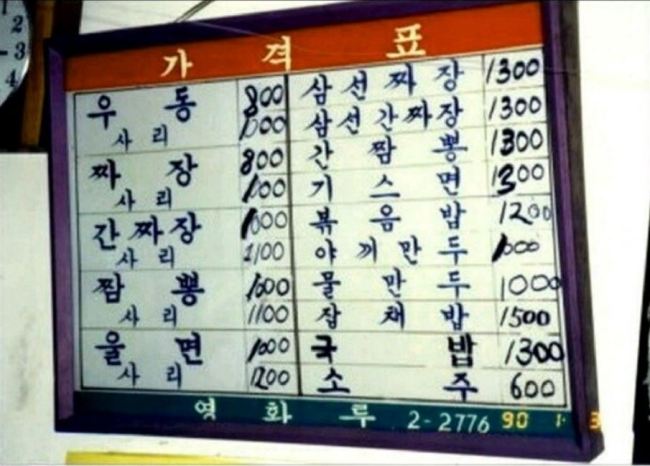 1
2
3
4
가격표
우동 800
사리 1000
짜장 800
사리 1000
간짜장 1000
사리 1100
짬뽕 1000
사리 1100
울면 1000
사리 1200
삼선짜장 1300
삼선간짜장 1300
간짬뽕 1300
기스면 1300
볶음밥 1200
야끼만두 1000
물만두 1000
잡채밥 1500
국밥 1300
소주 600
영화루 2-2776
90 1 3